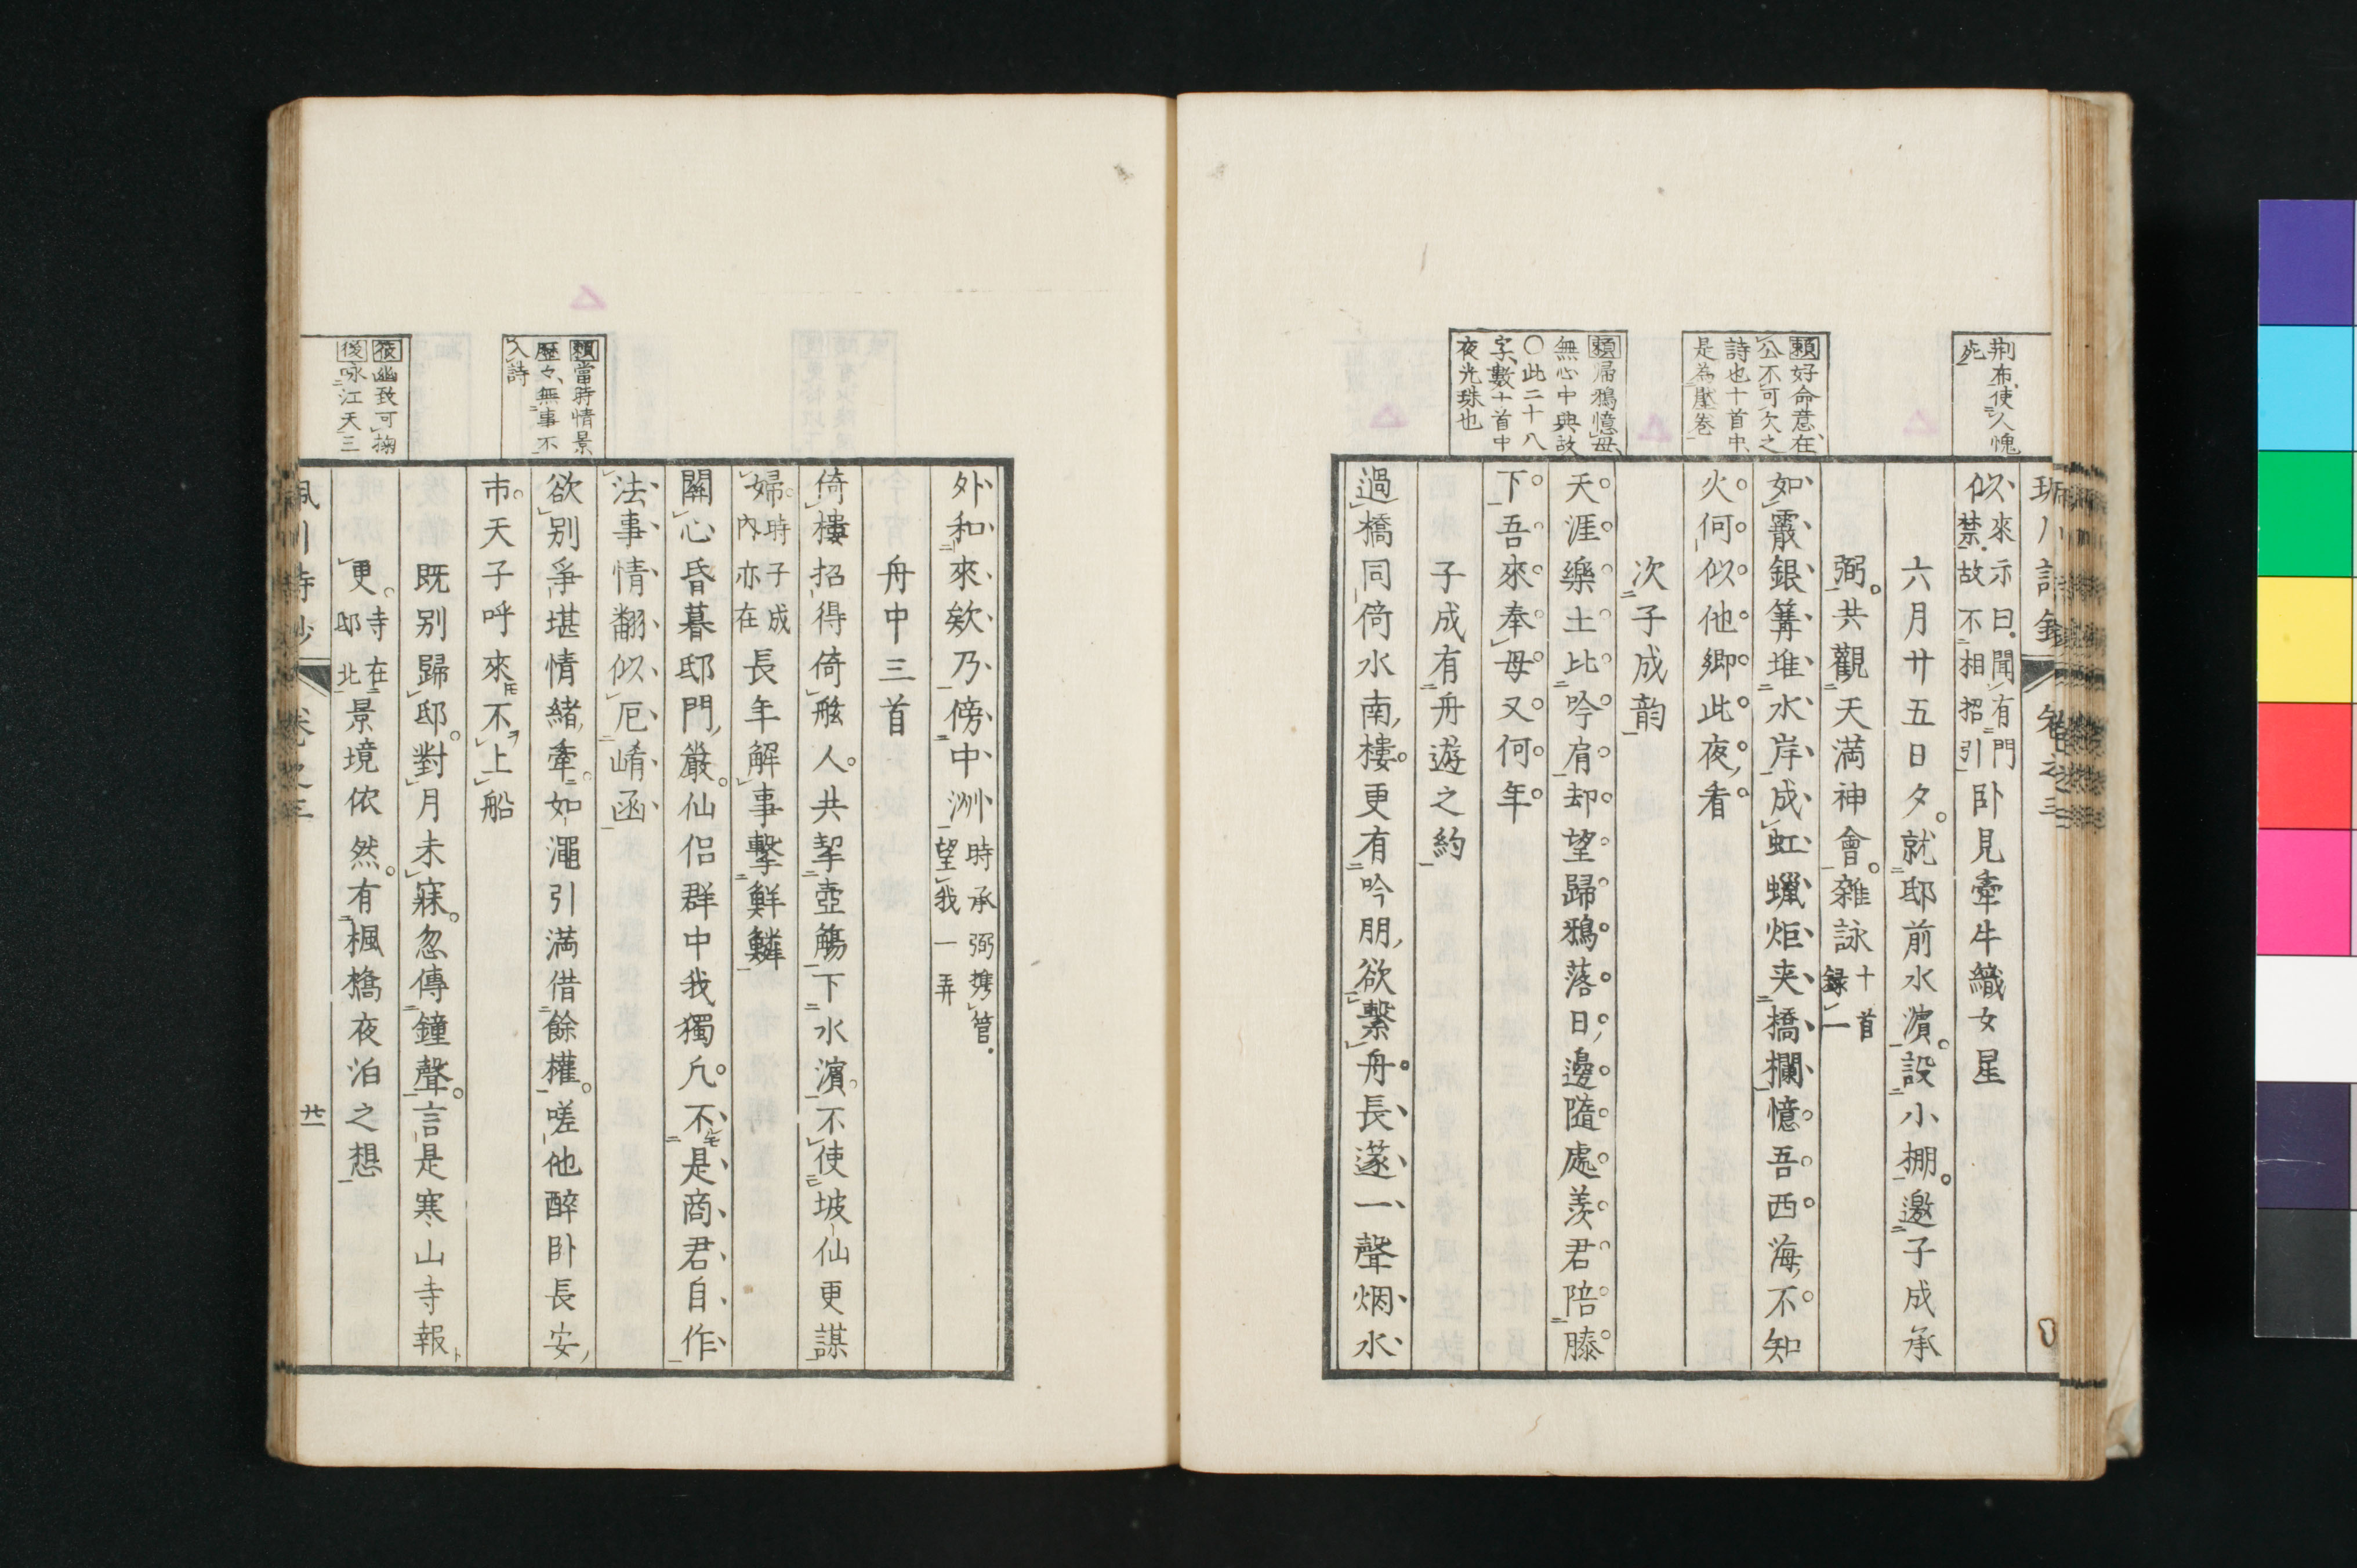 荆布使人愧
死
頼好命意在
公不可欠之
詩也十首中
是為壓卷
頼歸鴉憶母
無心中典故
〇此二十八
字數十首中
夜光珠也
似來示曰聞有門禁故不相招引臥見牽牛織女星
六月廿五日夕就邸前水濱設小棚邀子成承
弼共觀天滿神會雜詠十首錄一
如霰銀篝堆水岸成虹蠟炬夾橋欄憶吾西海不知
火何似他鄉此夜看
次子成韵
天涯樂土比吟肩却望歸鴉落日邊隨處羨君陪膝
下吾來奉母又何年
子成有舟遊之約
過橋同倚水南樓更有吟朋欲繫舟長遂一聲烟水
外和來欸乃傍中洲時承弼携管望我一弄
舟中三首
倚樓招得倚舷人共挈壺觴下水濱不使坡仙更謀
婦時子成內亦在長年解事擊鮮鱗
關心昏暮邸門嚴仙侶群中我獨凡不是商君自作
法事情翻似厄崤函
欲別爭堪情緒牽如澠引滿借餘權嗟他醉臥長安
市天子呼來不上船
既別歸邸對月未寐忽傳鐘聲言是寒山寺報
更寺在邸北景境依然有楓橋夜泊之想
頼當時情景
歷々無事不
入詩
筱幽致可掬
後咏江天三
卷之三
廿一